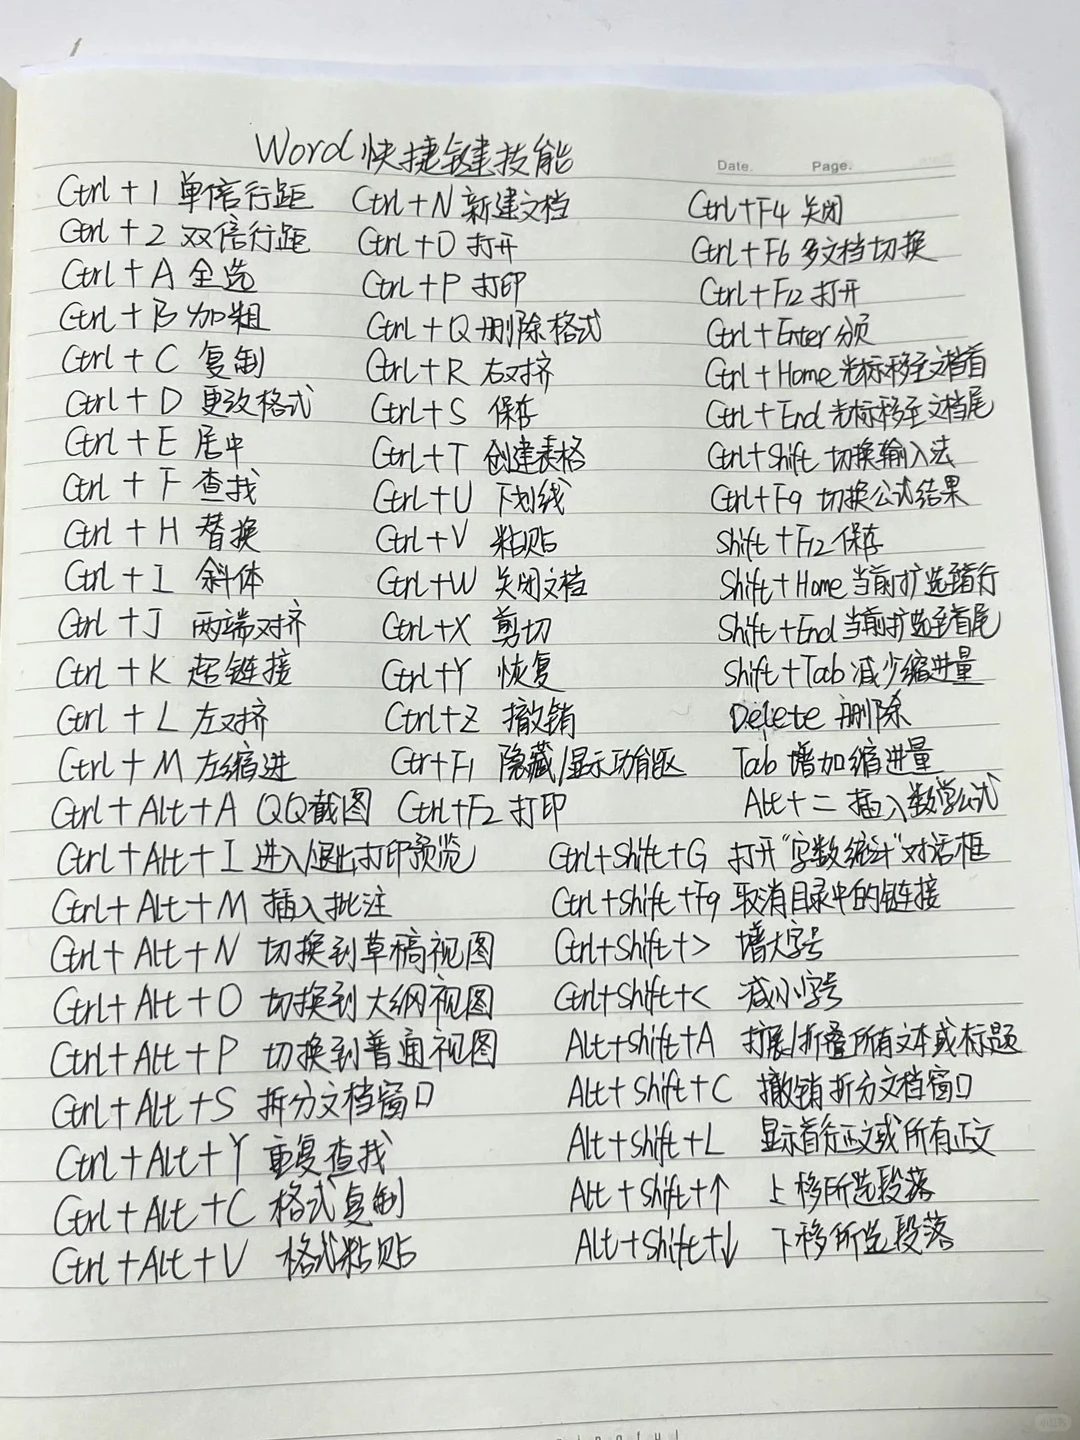 Word快捷键技能
Date.
Page.
Ctrl + 1 单倍行距
Ctrl + 2 双倍行距
Ctrl + A 全选
Ctrl + B 加粗
Ctrl + C 复制
Ctrl + D 更改格式
Ctrl + E 居中
Ctrl + F 查找
Ctrl + H 替换
Ctrl + I 斜体
Ctrl + J 两端对齐
Ctrl + K 超链接
Ctrl + L 左对齐
Ctrl + M 左缩进
Ctrl + N 新建文档
Ctrl + O 打开
Ctrl + P 打印
Ctrl + Q 删除格式
Ctrl + R 右对齐
Ctrl + S 保存
Ctrl + T 创建表格
Ctrl + U 下划线
Ctrl + V 粘贴
Ctrl + W 关闭文档
Ctrl + X 剪切
Ctrl + Y 恢复
Ctrl + Z 撤销
Ctr + F1 隐藏/显示功能区
Ctrl + F4 关闭
Ctrl + F6 多文档切换
Ctrl + F12 打开
Ctrl + Enter 分页
Ctrl + Home 光标移至文档首
Ctrl + End 光标移至文档尾
Ctrl + Shift 切换输入法
Ctrl + F9 切换公式结果
Shift + F12 保存
Shift + Home 当前扩选至首行
Shift + End 当前扩选至首尾
Shift + Tab 减少缩进量
Delete 删除
Tab 增加缩进量
Ctrl + Alt + A QQ截图
Ctrl + F2 打印
Alt + = 插入数学公式
Ctrl + Alt + I 进入/退出打印预览
Ctrl + Alt + M 插入批注
Ctrl + Alt + N 切换到草稿视图
Ctrl + Alt + O 切换到大纲视图
Ctrl + Alt + P 切换到普通视图
Ctrl + Alt + S 拆分文档窗口
Ctrl + Alt + Y 重复查找
Ctrl + Alt + C 格式复制
Ctrl + Alt + V 格式粘贴
Ctrl + Shift + G 打开"字数统计"对话框
Ctrl + Shift + F9 取消目录中的链接
Ctrl + Shift + > 增大字号
Ctrl + Shift + < 减小字号
Alt + Shift + A 扩展/折叠所有文本或标题
Alt + Shift + C 撤销拆分文档窗口
Alt + Shift + L 显示首行正文或所有正文
Alt + Shift + ↑ 上移所选段落
Alt + Shift + ↓ 下移所选段落
小红书